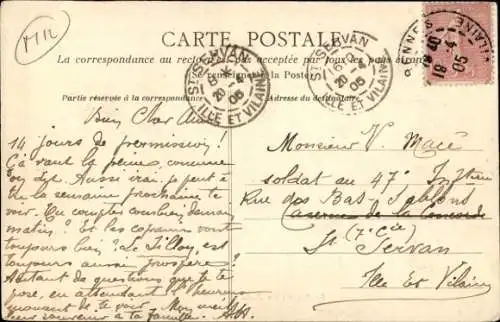 MIL
CARTE POSTALE
La correspondance au recto n'est pas acceptée par tous les pays étrangers
Se renseigner à la Poste
Partie réservée à la correspondance
Adresse du destinataire
ST SERVAN
20 -4
05
ILLE ET VILAINE
ST SERVAN
20 -4
05
ILLE ET VILAINE
RENNES
VILAINE
19 -4
05
Bien Cher Ami
14 jours de permission!
Ça vaut la peine, comme
Aussi vrai, je peut-être
la semaine prochaine te
voir. Tu comptes combien demain
matin? Et les copains vont
toujours bien? Le Sillon, est
toujours aussi prospère?
Autant de questions que je te
pose, en attendant l'heureux
moment de te voir. Mon meilleur
souvenir à ta famille.
Monsieur V. Macé
soldat au 47e Inf
Rue des Bas Sablons
Caserne de la Concorde
(7e Cie)
St Servan
Ille et Vilaine